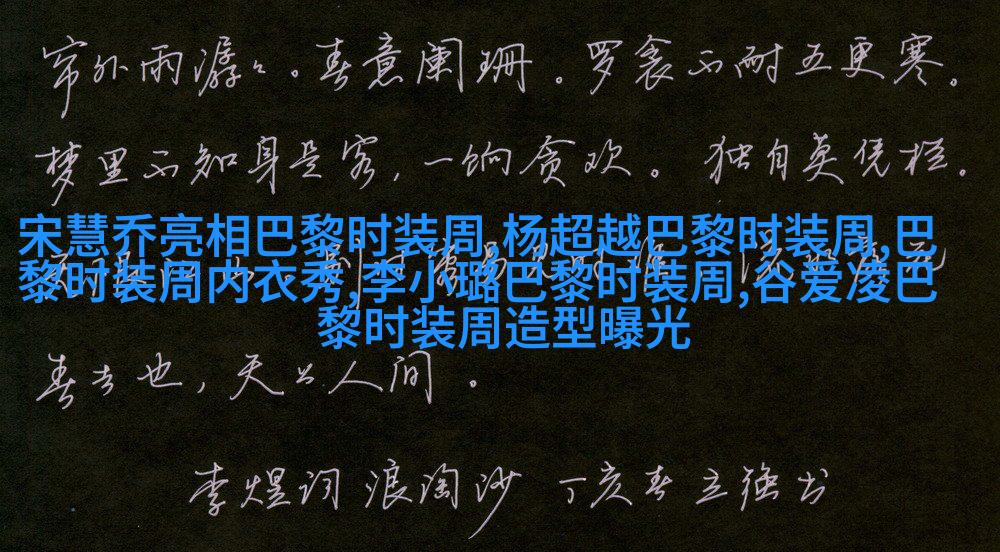 帘外雨潺々。春意阑珊。罗衾不耐五更寒。
梦里不知身是客，一饷贪欢。独自莫凭栏。
宋慧乔亮相巴黎时装周,杨超越巴黎时装周,巴
黎时装周内衣秀,李小璐巴黎时装周,谷爱凌巴
黎时装周造型曝光
春去也，天上人间。
李煜词浪淘沙 丁亥春立强书